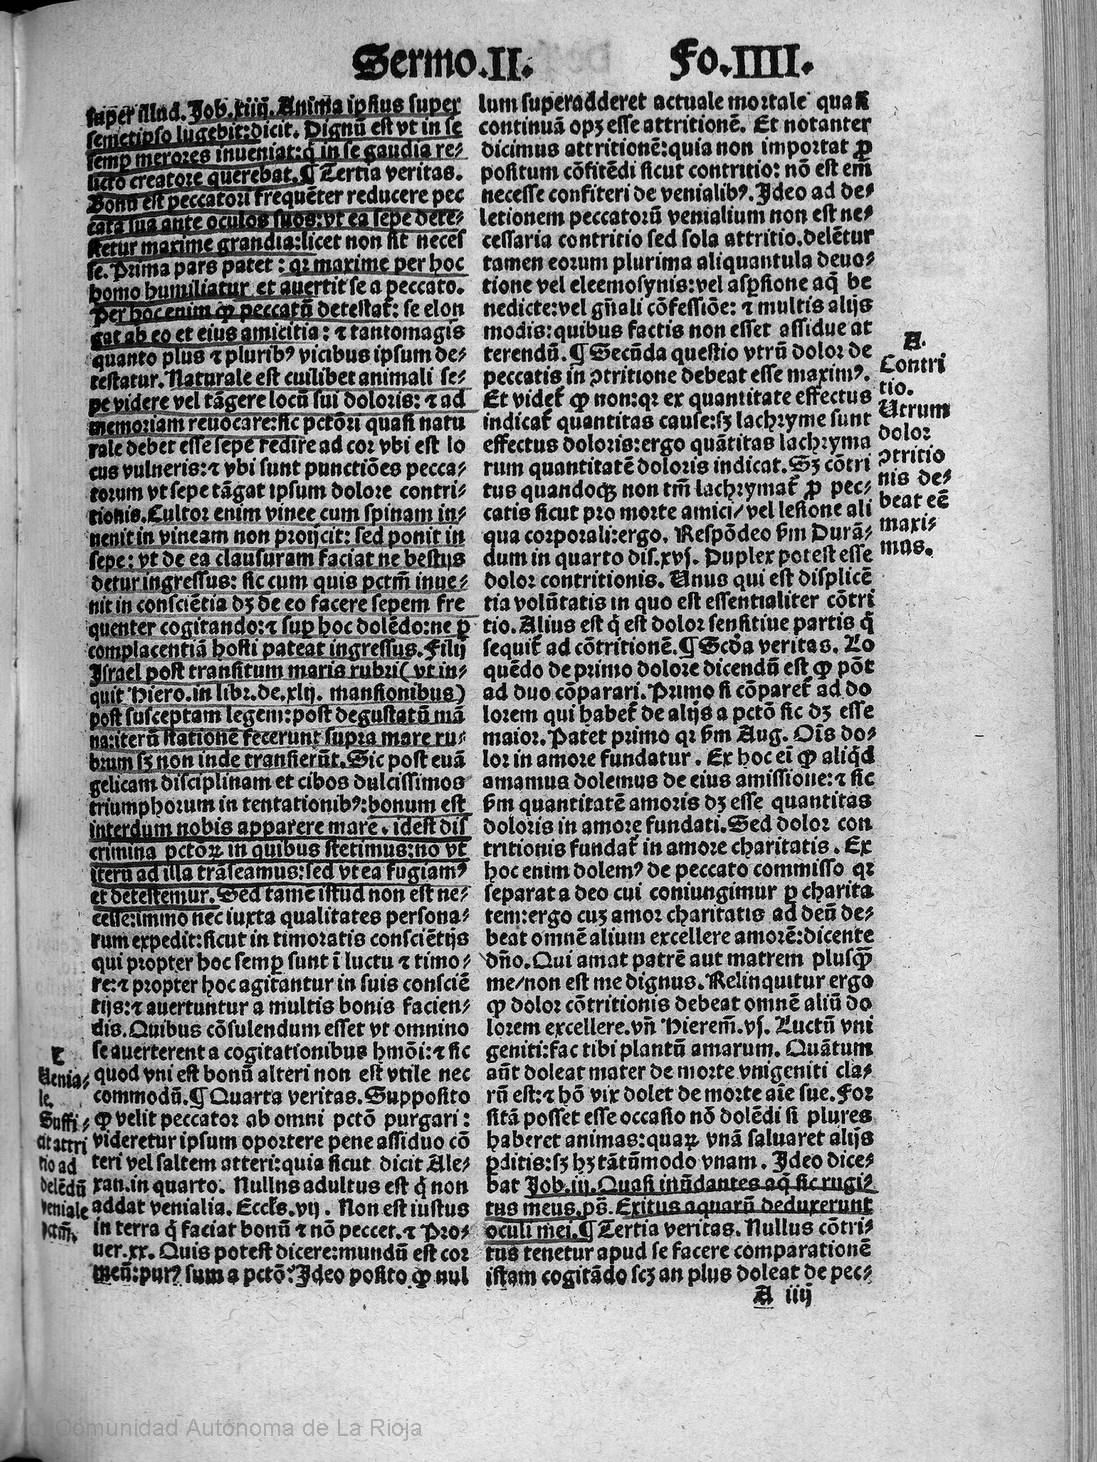 Sermo.II. Fo.IIII.
super illud. Job.xiiij. Anima ipsius super
semetipso lugebit:dicit. Dignũ est vt in se
semp merores inueniat:q̃ in se gaudia re⸗
licto creatore querebat.¶ Tertia veritas.
Bonũ est peccatori frequẽter reducere pec
cata sua ante oculos suos:vt ea sepe dete⸗
stetur maxime grandia:licet non sit neces
se. Prima pars patet : qꝛ maxime per hoc
homo humiliatur et auertit se a peccato.
Per hoc enim ꝙ peccatũ detestat̃: se elon
gat ab eo et eius amicitia : ⁊ tantomagis
quanto plus ⁊ pluribꝰ vicibus ipsum de⸗
testatur. Naturale est cuilibet animali se⸗
pe videre vel tãgere locũ sui doloris: ⁊ ad
memoriam reuocare:sic pctõri quasi natu
rale debet esse sepe redire ad cor vbi est lo
cus vulneris:⁊ vbi sunt punctiões pecca⸗
torum vt sepe tãgat ipsum dolore contri⸗
tionis.Cultor enim vinee cum spinam in⸗
uenit in vineam non proijcit: sed ponit in
sepe: vt de ea clausuram faciat ne bestijs
detur ingressus: sic cum quis pctm̃ inue⸗
nit in consciẽtia dꝫ de eo facere sepem fre
quenter cogitando:⁊ suꝑ hoc dolẽdo:ne ꝑ
complacentiã hosti pateat ingressus. Filij
Israel post transitum maris rubri( vt in⸗
quit Hiero.in libr.de.xlij. mansionibus)
post susceptam legem:post degustatũ mã
na:iterũ stationẽ fecerunt supra mare ru⸗
brum sꝫ non inde transierũt. Sic post euã
gelicam disciplinam et cibos dulcissimos
triumphorum in tentationibꝰ:bonum est
interdum nobis apparere mare. idest dis
crimina pctoꝝ in quibus stetimus:no vt
iterũ ad illa trãseamus:sed vt ea fugiamꝰ
et detestemur. Sed tamẽ istud non est ne⸗
cesse:immo nec iuxta qualitates persona⸗
rum expedit:sicut in timoratis consciẽtijs
qui propter hoc semꝑ sunt ĩ luctu ⁊ timo⸗
re:⁊ propter hoc agitantur in suis consciẽ
tijs:⁊ auertuntur a multis bonis facien⸗
dis. Quibus cõsulendum esset vt omnino
se auerterent a cogitationibus hmõi:⁊ sic
quod vni est bonũ alteri non est vtile nec
commodũ.¶ Quarta veritas. Supposito
ꝙ velit peccator ab omni pctõ purgari :
videretur ipsum oportere pene assiduo cõ
teri vel saltem atteri:quia sicut dicit Ale⸗
xan.in quarto. Nullns adultus est q̃ non
addat venialia. Eccłs.vij . Non est iustus
in terra q̃ faciat bonũ ⁊ nõ peccet.⁊ Pro⸗
uer.xx. Quis potest dicere:mundũ est cor
meũ:purꝰ sum a pctõ? Ideo posito ꝙ nul
E
Venia⸗
le.
Suffi⸗
cit attri
tio ad
delẽdũ
veniale
pctm̃.
lum superadderet actuale mortale quasi
continuã opꝫ esse attritionẽ. Et notanter
dicimus attritionẽ:quia non importat ꝓ
positum cõfitẽdi sicut contritio: nõ est em̃
necesse confiteri de venialibꝰ. Ideo ad de⸗
letionem peccatorũ venialium non est ne⸗
cessaria contritio sed sola attritio.delẽtur
tamen eorum plurima aliquantula deuo⸗
tione vel eleemosynis:vel aspsione aq̃ be
nedicte:vel gñali cõfessiõe: ⁊ multis alijs
modis:quibus factis non esset assidue at
terendũ.¶ Secũda questio vtrũ dolor de
peccatis in ↄtritione debeat esse maximꝰ.
Et videt̃ ꝙ non:qꝛ ex quantitate effectus
indicat̃ quantitas cause:sꝫ lachryme sunt
effectus doloris:ergo quãtitas lachryma
rum quantitatẽ doloris indicat. Sꝫ cõtri
tus quandoqꝫ non tm̃ lachrymat̃ ꝓ pec⸗
catis sicut pro morte amici/ vel lesione ali
qua corporali:ergo. Respõdeo ẜm Durã⸗
dum in quarto dis.xvj. Duplex potest esse
dolor contritionis. Unus qui est displicẽ
tia volũtatis in quo est essentialiter cõtri
tio. Alius est q̃ est dolor sensitiue partis q̃
sequit̃ ad cõtritionẽ.¶ Scďa veritas. Lo
quẽdo de primo dolore dicendũ est ꝙ põt
ad duo cõparari. Primo si cõparet̃ ad do
lorem qui habet̃ de alijs a pctõ sic dꝫ esse
maior. Patet primo qꝛ ẜm Aug. Oĩs do⸗
lor in amore fundatur . Ex hoc eĩ ꝙ aliq̃d
amamus dolemus de eius amissione:⁊ sic
ẜm quantitatẽ amoris dꝫ esse quantitas
doloris in amore fundati. Sed dolor con
tritionis fundat̃ in amore charitatis . Ex
hoc enim dolemꝰ de peccato commisso qꝛ
separat a deo cui coniungimur ꝑ charita
tem:ergo cuꝫ amor charitatis ad deũ de⸗
beat omnẽ alium excellere amorẽ:dicente
dño. Qui amat patrẽ aut matrem plusꝙ̃
me/non est me dignus. Relinquitur ergo
ꝙ dolor cõtritionis debeat omnẽ aliũ do
lorem excellere.vñ Hierem̃.vj. Luctũ vni
geniti:fac tibi planctũ amarum. Quãtum
aũt doleat mater de morte vnigeniti cla⸗
rũ est:⁊ hõ vix dolet de morte aĩe sue. For
sitã posset esse occasio nõ dolẽdi si plures
haberet animas:quaꝝ vnã saluaret alijs
ꝑditis:sꝫ hꝫ tãtũmodo vnam. Ideo dice⸗
bat Job.iij. Quasi inũdantes aq̃ sic rugi⸗
tus meus.ps̃. Exitus aquarũ deduxerunt
oculi mei.¶ Tertia veritas. Nullus cõtri⸗
tus tenetur apud se facere comparationẽ
istam cogitãdo scꝫ an plus doleat de pec⸗
A.
Contri
tio.
Utrum
dolor
ↄtritio
nis de⸗
beat eẽ
maxi⸗
mus.
A iiij
Comunidad Autónoma de La Rioja